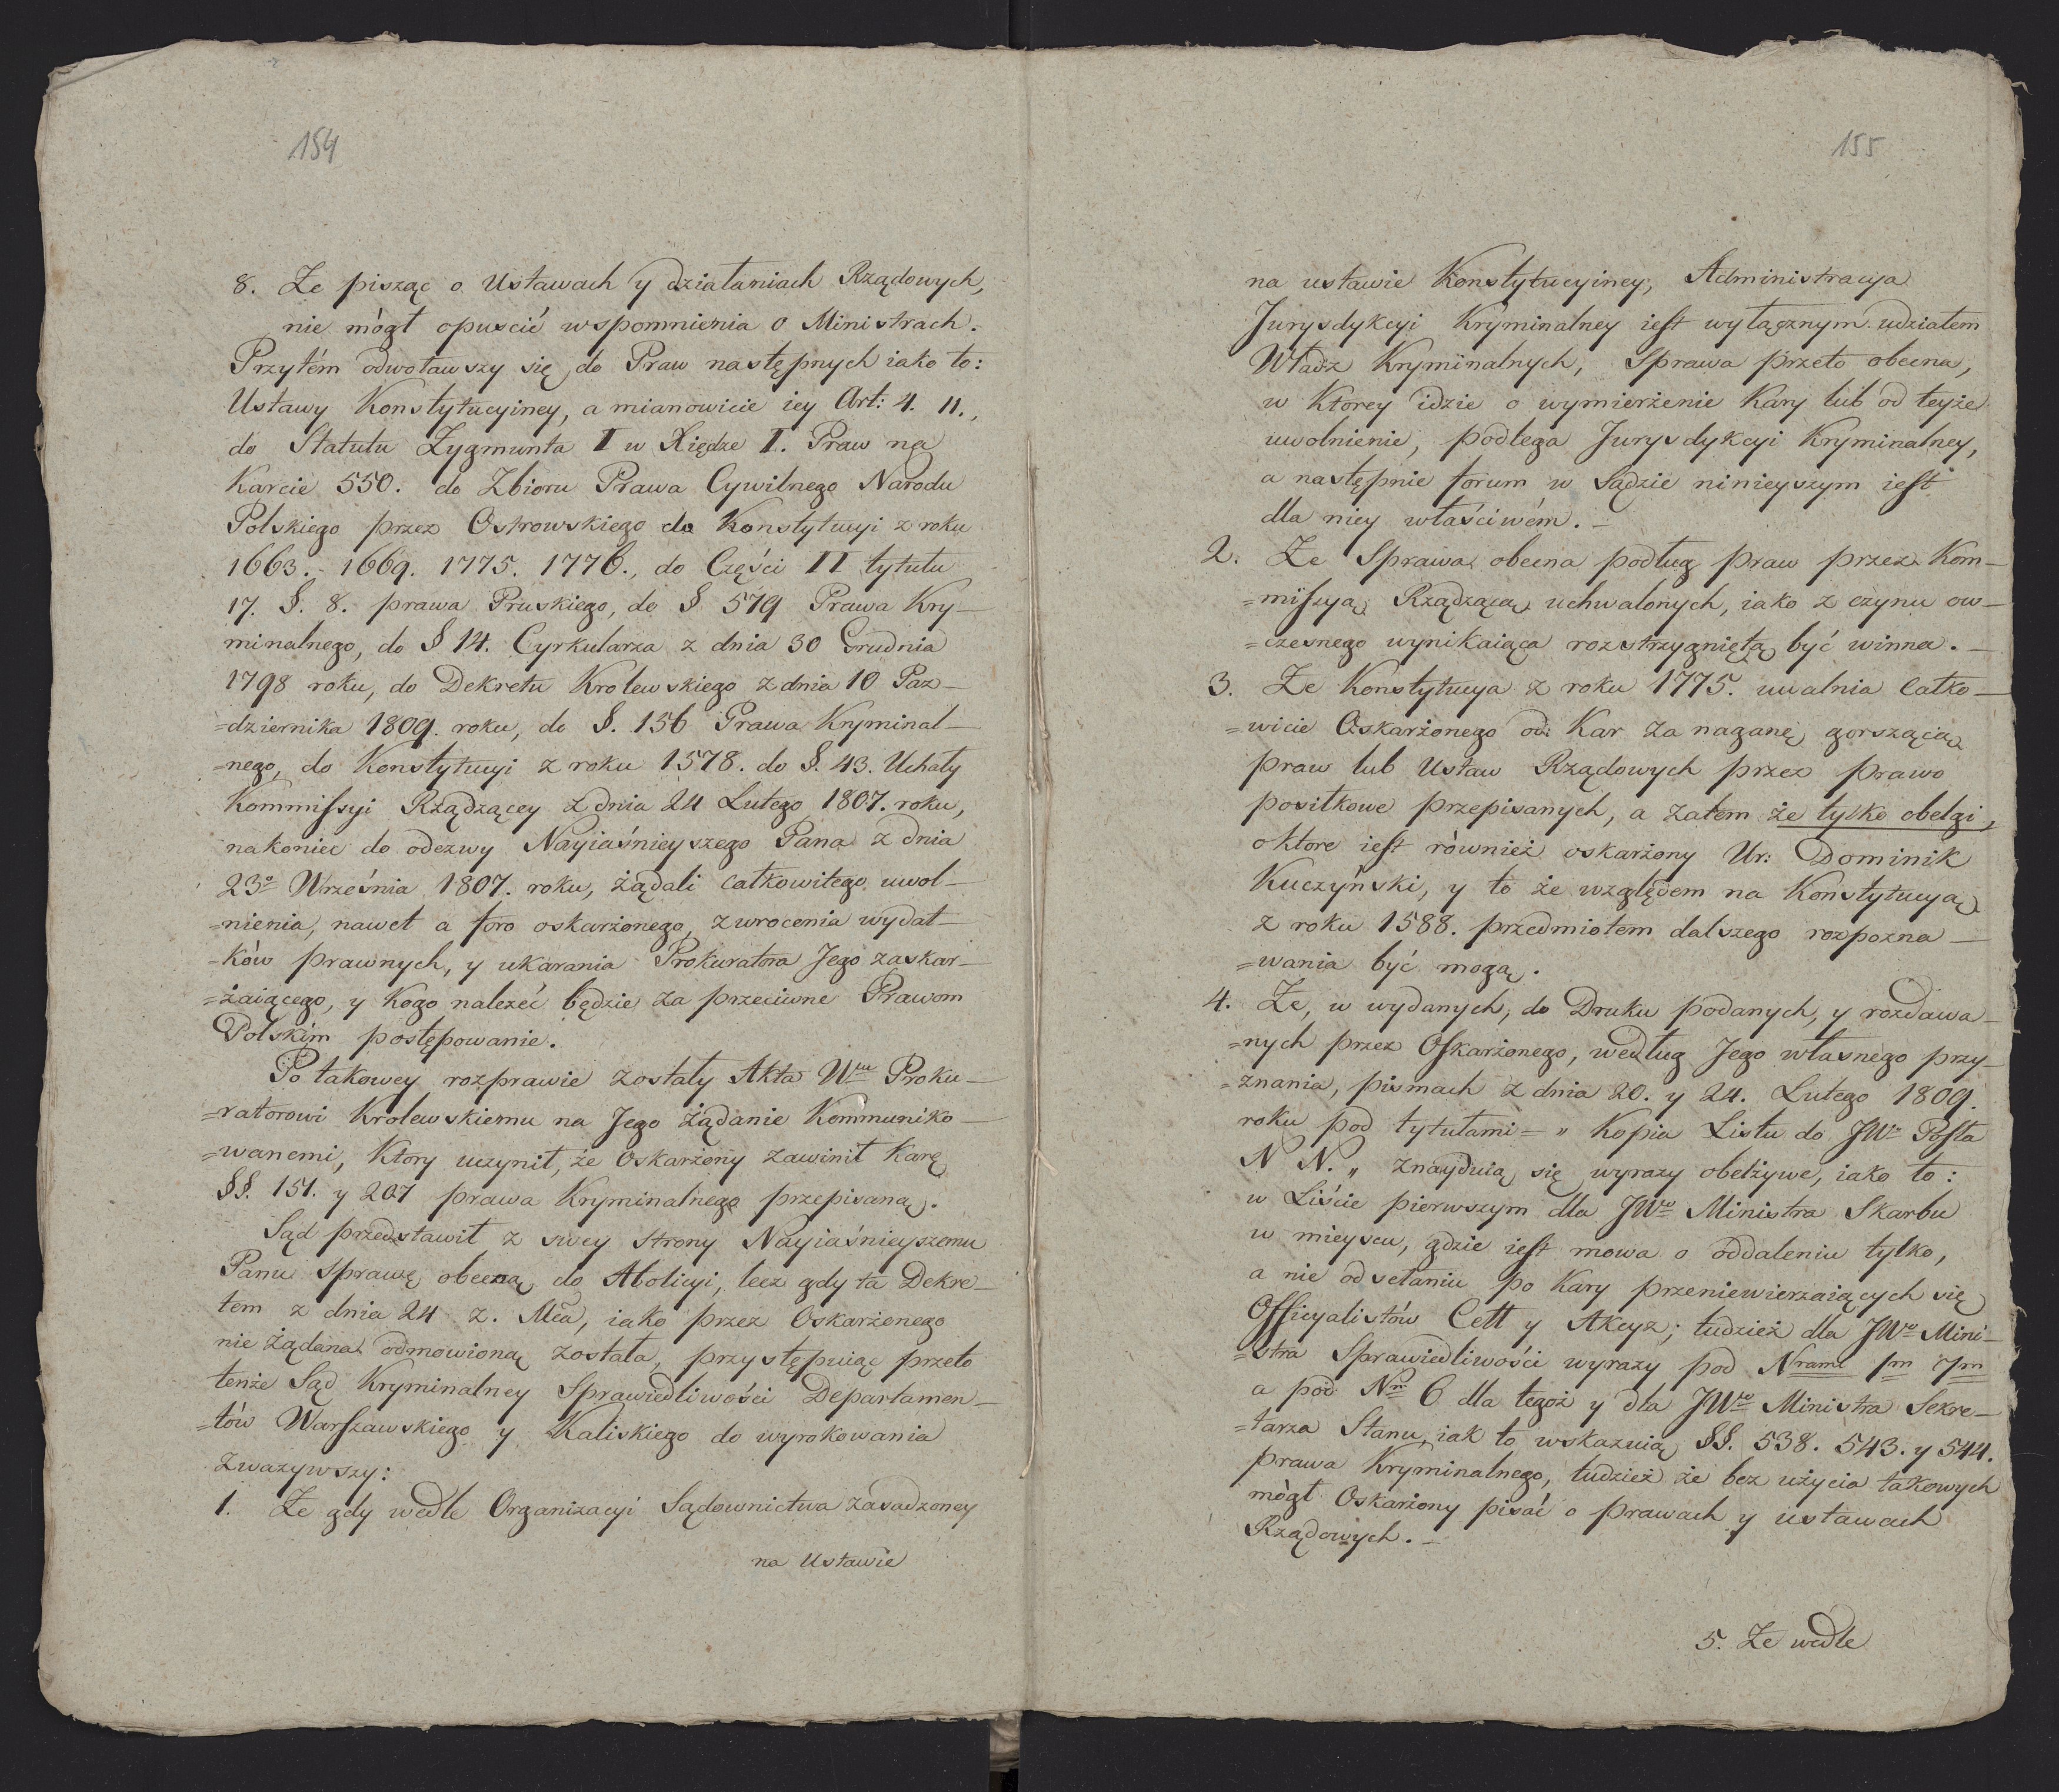 154
8. Że pisząc o Ustawach y działaniach Rządowych,
nie mógł opuscić wspomnienia o Ministrach.
Przytém odwoławszy się do Praw następnych iako to:
Ustawy Konstytucyiney, a mianowicie iey Art: 4. 11.,
do Statutu Zygmunta I w Xiędze I. Praw na
Karcie 550. do Zbioru Prawa Cywilnego Narodu
Polskiego przez Ostrowskiego do Konstytucyi z roku
1663. - 1669. 1775. 1776., do Części II tytułu
17. §. 8. prawa Pruskiego, do § 579 Prawa Kry-
minalnego, do § 14. Cyrkularza z dnia 30 Grudnia
1798 roku, do Dekretu Krolewskiego z dnia 10 Paz-
=dziernika 1809. roku, do §. 156 Prawa Kryminal-
=nego, do Konstytucyi z roku 1578. do §. 43. Uchały
Kommissyi Rządzącey z dnia 24 Lutego 1807. roku,
nakoniec do odezwy Nayiaśnieyszego Pana z dnia
23º Września 1807. roku, żądali całkowitego uwol-
=nienia, nawet a foro oskarżonego, zwrocenia wydat-
=ków prawnych, y ukarania Prokuratora Jego zaskar-
=żaiącego, y Kogo należeć będzie za przeciwne Prawom
Polskim postępowanie.
Po takowey rozprawie zostały Akta Wmu Proku-
=ratorowi Krolewskiemu na Jego żądanie Kommuniko-
=wanemi, Ktory uczynił, że Oskarżony zawinił Karę
§§. 151. y 207 prawa Kryminalnego przepisaną.
Sąd przedstawił z swey strony Nayiaśnieyszemu
Panu sprawę obecną do Abolicyi, lecz gdy ta Dekre-
tem z dnia 24 z. Mca, iako przez Oskarżonego
nie żądana odmowioną została, przystępuiąc przeto
tenże Sąd Kryminalney Sprawiedliwości Departamen-
=tów Warszawskiego y Kaliskiego do wyrokowania
zważywszy:
1. Że gdy wedle Organizacyi Sądownictwa zasadzoney
na Ustawie
155
na ustawie Konstytucyiney, Administracya
Jurysdykcyi Kryminalney iest wyłącznym udziałem
Władz Kryminalnych, Sprawa przeto obecna,
w Ktorey idzie o wymierżenie Kary lub od teyże
uwolnienie, podlega Jurysdykcyi Kryminalney,
a następnie forum w Sądzie ninieyszym iest
dla niey właściwém. -
2. Że Sprawa obecna podług praw przez Kom-
=missyą Rządzącą uchwalonych, iako z czynu ow-
=czesnego wynikaiąca rozstrzygniętą być winna. -
3. Że Konstytucya z roku 1775. uwalnia całko-
=wicie Oskarżonego od Kar za naganę gorszącą
praw lub Ustaw Rządowych przez prawo
posiłkowe przepisanych, a zatem że tylko obelgi,
o ktore iest również oskarżony Ur: Dominik
Kuczyński, y to że względem na Konstytucyą
z roku 1588. przedmiotem dalszego rozpozna-
=wania być mogą.
4. Że, w wydanych, do Druku podanych, y rozdawa-
=nych przez Oskarżonego, według Jego własnego przy-
=znania, pismach z dnia 20. y 24. Lutego 1809.
roku pod tytułami = „ Kopia Listu do JWo Posła
N N. „ znayduią się wyrazy obelżywe, iako to:
w Liście pierwszym dla JWgo Ministra Skarbu
w mieyscu, gdzie iest mowa o oddaleniu tylko,
a nie odsełaniu po Kary przeniewierzaiących się
Officyalistów Cell y Akcyz; tudzież dla JWgo Mini-
=stra Sprawiedliwości wyrazy pod Nrami 1m 7m
a pod Nrm 6 dla tegoż y dla JWgo Ministra Sekre-
=tarza Stanu, iak to wskazuią §§. 538. 543. y 544.
prawa Kryminalnego, tudzież że bez użycia takowych
mógł Oskarżony pisać o prawach y ustawach
Rządowych. -
5. Że wedle